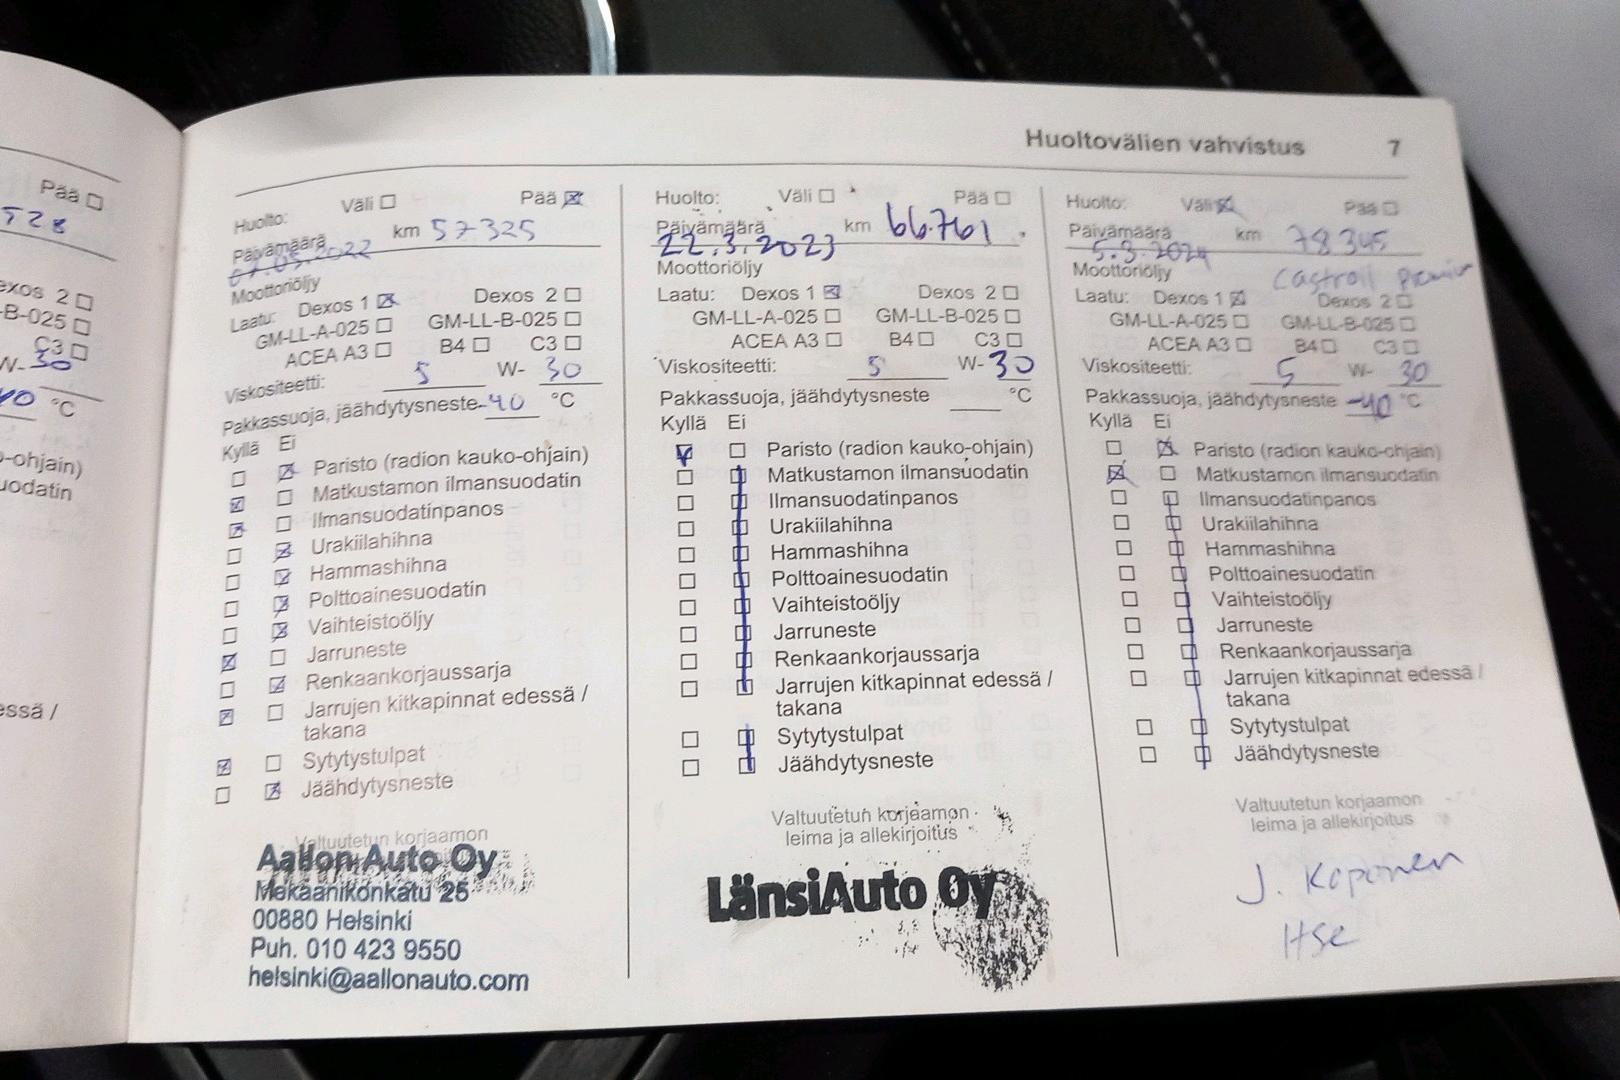 Huoltovälien vahvistus 7
Pää ☐
528
exos 2 ☐
-B-025 ☐
C3 ☐
W-30
40 °C
o-ohjain)
uodatin
essä /
Huolto: Väli ☐ Pää ☒
Päivämäärä km 57325
07.03.2022
Moottoriöljy
Laatu: Dexos 1 ☒ Dexos 2 ☐
GM-LL-A-025 ☐ GM-LL-B-025 ☐
ACEA A3 ☐ B4 ☐ C3 ☐
Viskositeetti: 5 W- 30
Pakkassuoja, jäähdytysneste -40 °C
Kyllä Ei
☐ ☒ Paristo (radion kauko-ohjain)
☒ ☐ Matkustamon ilmansuodatin
☒ ☐ Ilmansuodatinpanos
☐ ☒ Urakiilahihna
☐ ☒ Hammashihna
☐ ☒ Polttoainesuodatin
☐ ☒ Vaihteistoöljy
☒ ☐ Jarruneste
☐ ☒ Renkaankorjaussarja
☒ ☐ Jarrujen kitkapinnat edessä /
takana
☒ ☐ Sytytystulpat
☐ ☒ Jäähdytysneste
Valtuutetun korjaamon
Aallon Auto Oy
Mekaanikonkatu 25
00880 Helsinki
Puh. 010 423 9550
helsinki@aallonauto.com
Huolto: Väli ☐ Pää ☐
Päivämäärä km 66.761
22.3.2023
Moottoriöljy
Laatu: Dexos 1 ☒ Dexos 2 ☐
GM-LL-A-025 ☐ GM-LL-B-025 ☐
ACEA A3 ☐ B4 ☐ C3 ☐
Viskositeetti: 5 W- 30
Pakkassuoja, jäähdytysneste °C
Kyllä Ei
☒ ☐ Paristo (radion kauko-ohjain)
☐ ☒ Matkustamon ilmansuodatin
☐ ☒ Ilmansuodatinpanos
☐ ☒ Urakiilahihna
☐ ☒ Hammashihna
☐ ☒ Polttoainesuodatin
☐ ☒ Vaihteistoöljy
☐ ☒ Jarruneste
☐ ☒ Renkaankorjaussarja
☐ ☒ Jarrujen kitkapinnat edessä /
takana
☐ ☒ Sytytystulpat
☐ ☒ Jäähdytysneste
Valtuutetun korjaamon
leima ja allekirjoitus
LänsiAuto Oy
Huolto: Väli ☒ Pää ☐
Päivämäärä km 78345
5.3.2024
Moottoriöljy Castroil
Laatu: Dexos 1 ☒ Dexos 2 ☐
GM-LL-A-025 ☐ GM-LL-B-025 ☐
ACEA A3 ☐ B4 ☐ C3 ☐
Viskositeetti: 5 W- 30
Pakkassuoja, jäähdytysneste -40 °C
Kyllä Ei
☐ ☒ Paristo (radion kauko-ohjain)
☒ ☐ Matkustamon ilmansuodatin
☐ ☒ Ilmansuodatinpanos
☐ ☒ Urakiilahihna
☐ ☒ Hammashihna
☐ ☒ Polttoainesuodatin
☐ ☒ Vaihteistoöljy
☐ ☒ Jarruneste
☐ ☒ Renkaankorjaussarja
☐ ☒ Jarrujen kitkapinnat edessä /
takana
☐ ☒ Sytytystulpat
☐ ☒ Jäähdytysneste
Valtuutetun korjaamon
leima ja allekirjoitus
J. Koponen
Itse